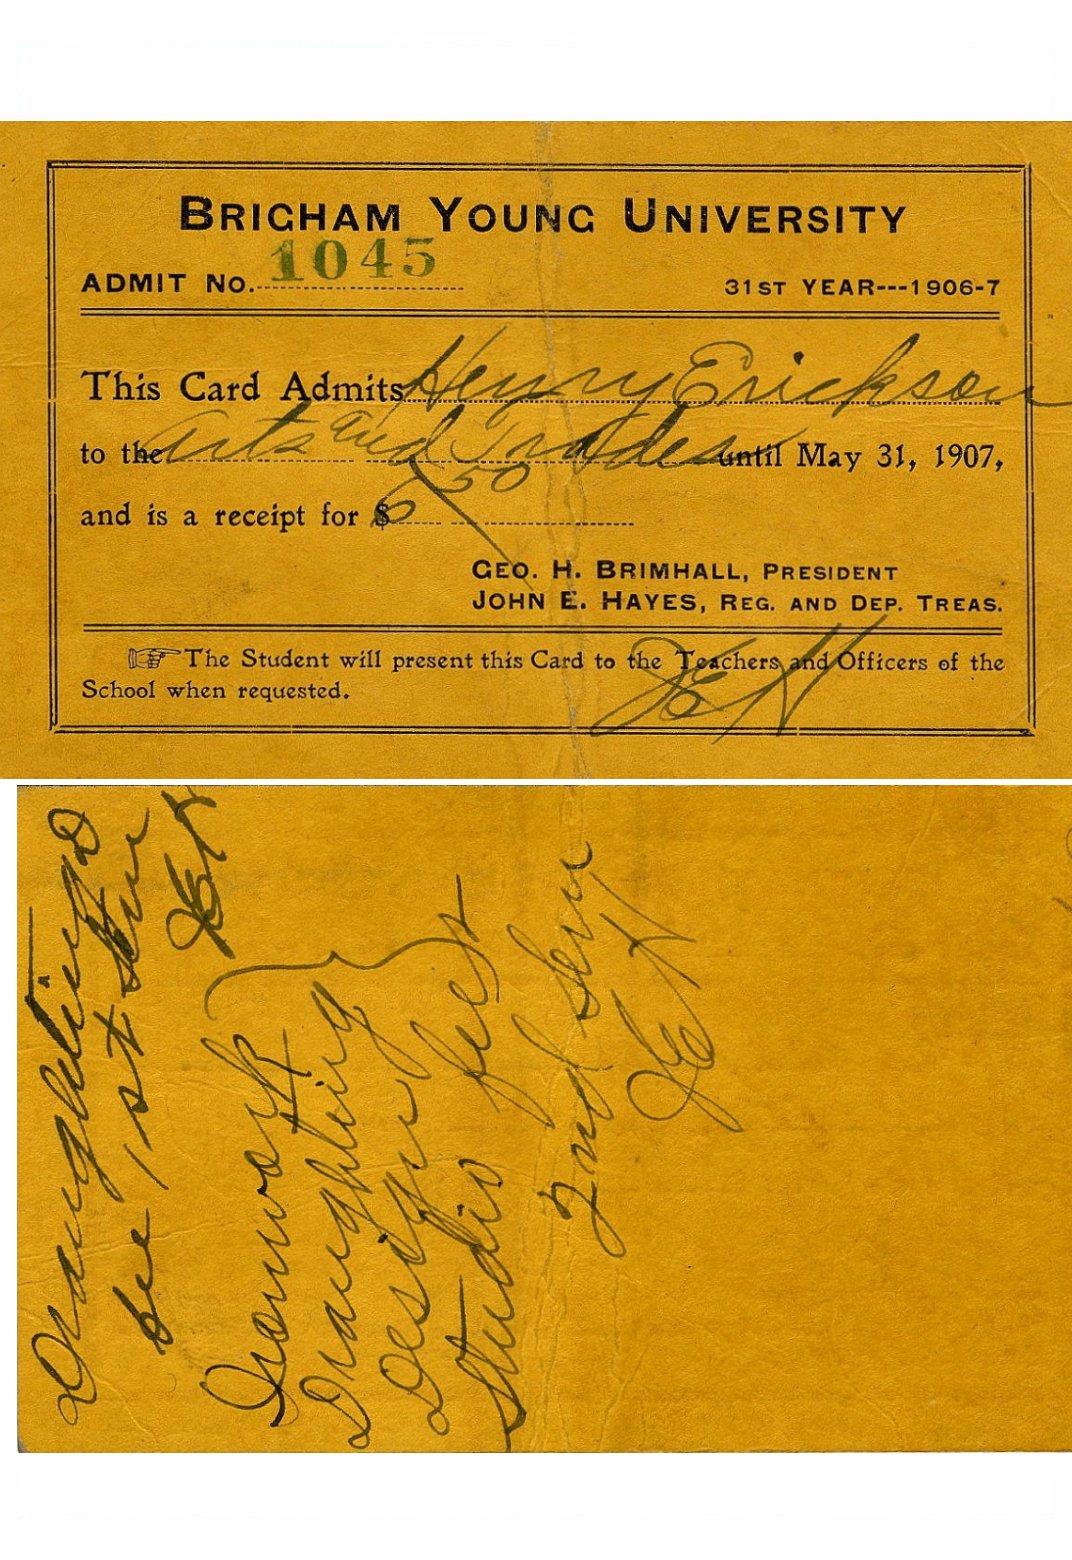 BRIGHAM YOUNG UNIVERSITY
ADMIT NO. 1045 31ST YEAR---1906-7
This Card Admits Henry Erickson
to the Arts and Trades until May 31, 1907,
and is a receipt for $6 50
GEO. H. BRIMHALL, PRESIDENT
JOHN E. HAYES, REG. AND DEP. TREAS.
The Student will present this Card to the Teachers and Officers of the
School when requested.
JEH
Draughting
1st Sem
JEH
Ironwork
Draughting
Design
Studio fees
2nd Sem
JEH